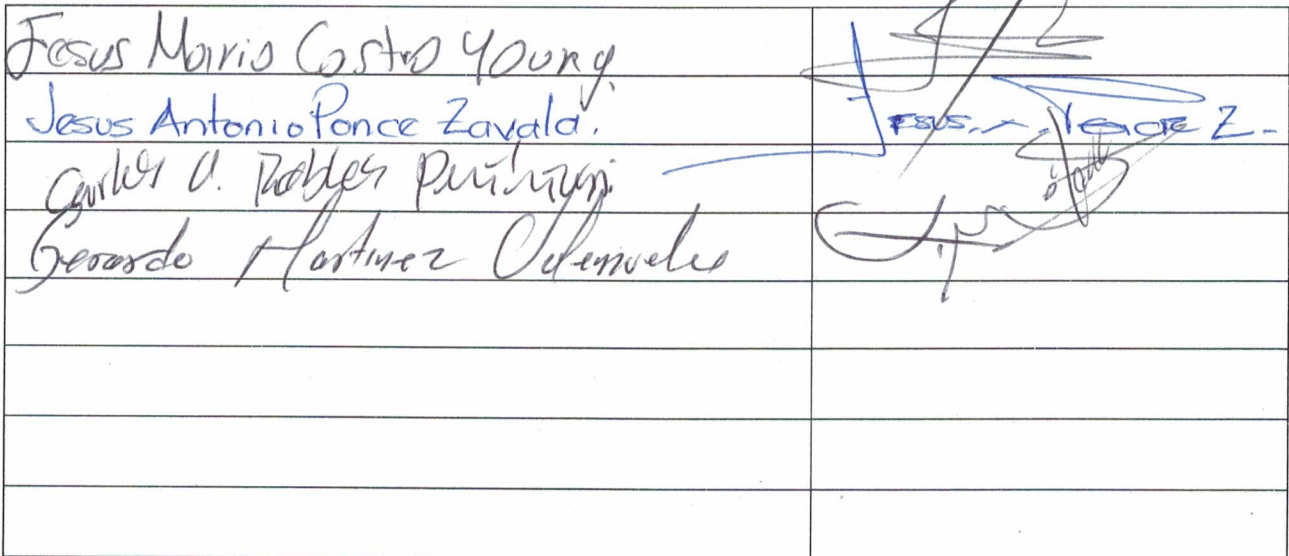 Jesus Mario Castro Young.
Jesus Antonio Ponce Zavala. Jesus A. Ponce Z.
Carlos A. Robles
Gerardo Martinez Valenzuela